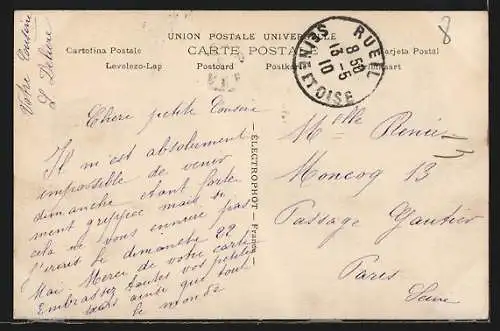 UNION POSTALE UNIVERSELLE
CARTE POSTALE
Cartolina Postale Tarjeta Postal
Levelezo-Lap Postcard
8
RUEIL
SEINE ET OISE
8 50
13 -5
10
Votre Cousine
L
Chere petite Cousine
Il m'est absolument
impossible de venir
dimanche etant forte
ment grippée mais si
cela ne vous ennuie pas
j'irais le dimanche 22
Mai. Merci de votre carte
Embrassez toutes vos petites
ainsi que tout
le monde
ÉLECTROPHOT — France
Melle Renée
Moncoq 13
Passage Gautier
Paris
Seine